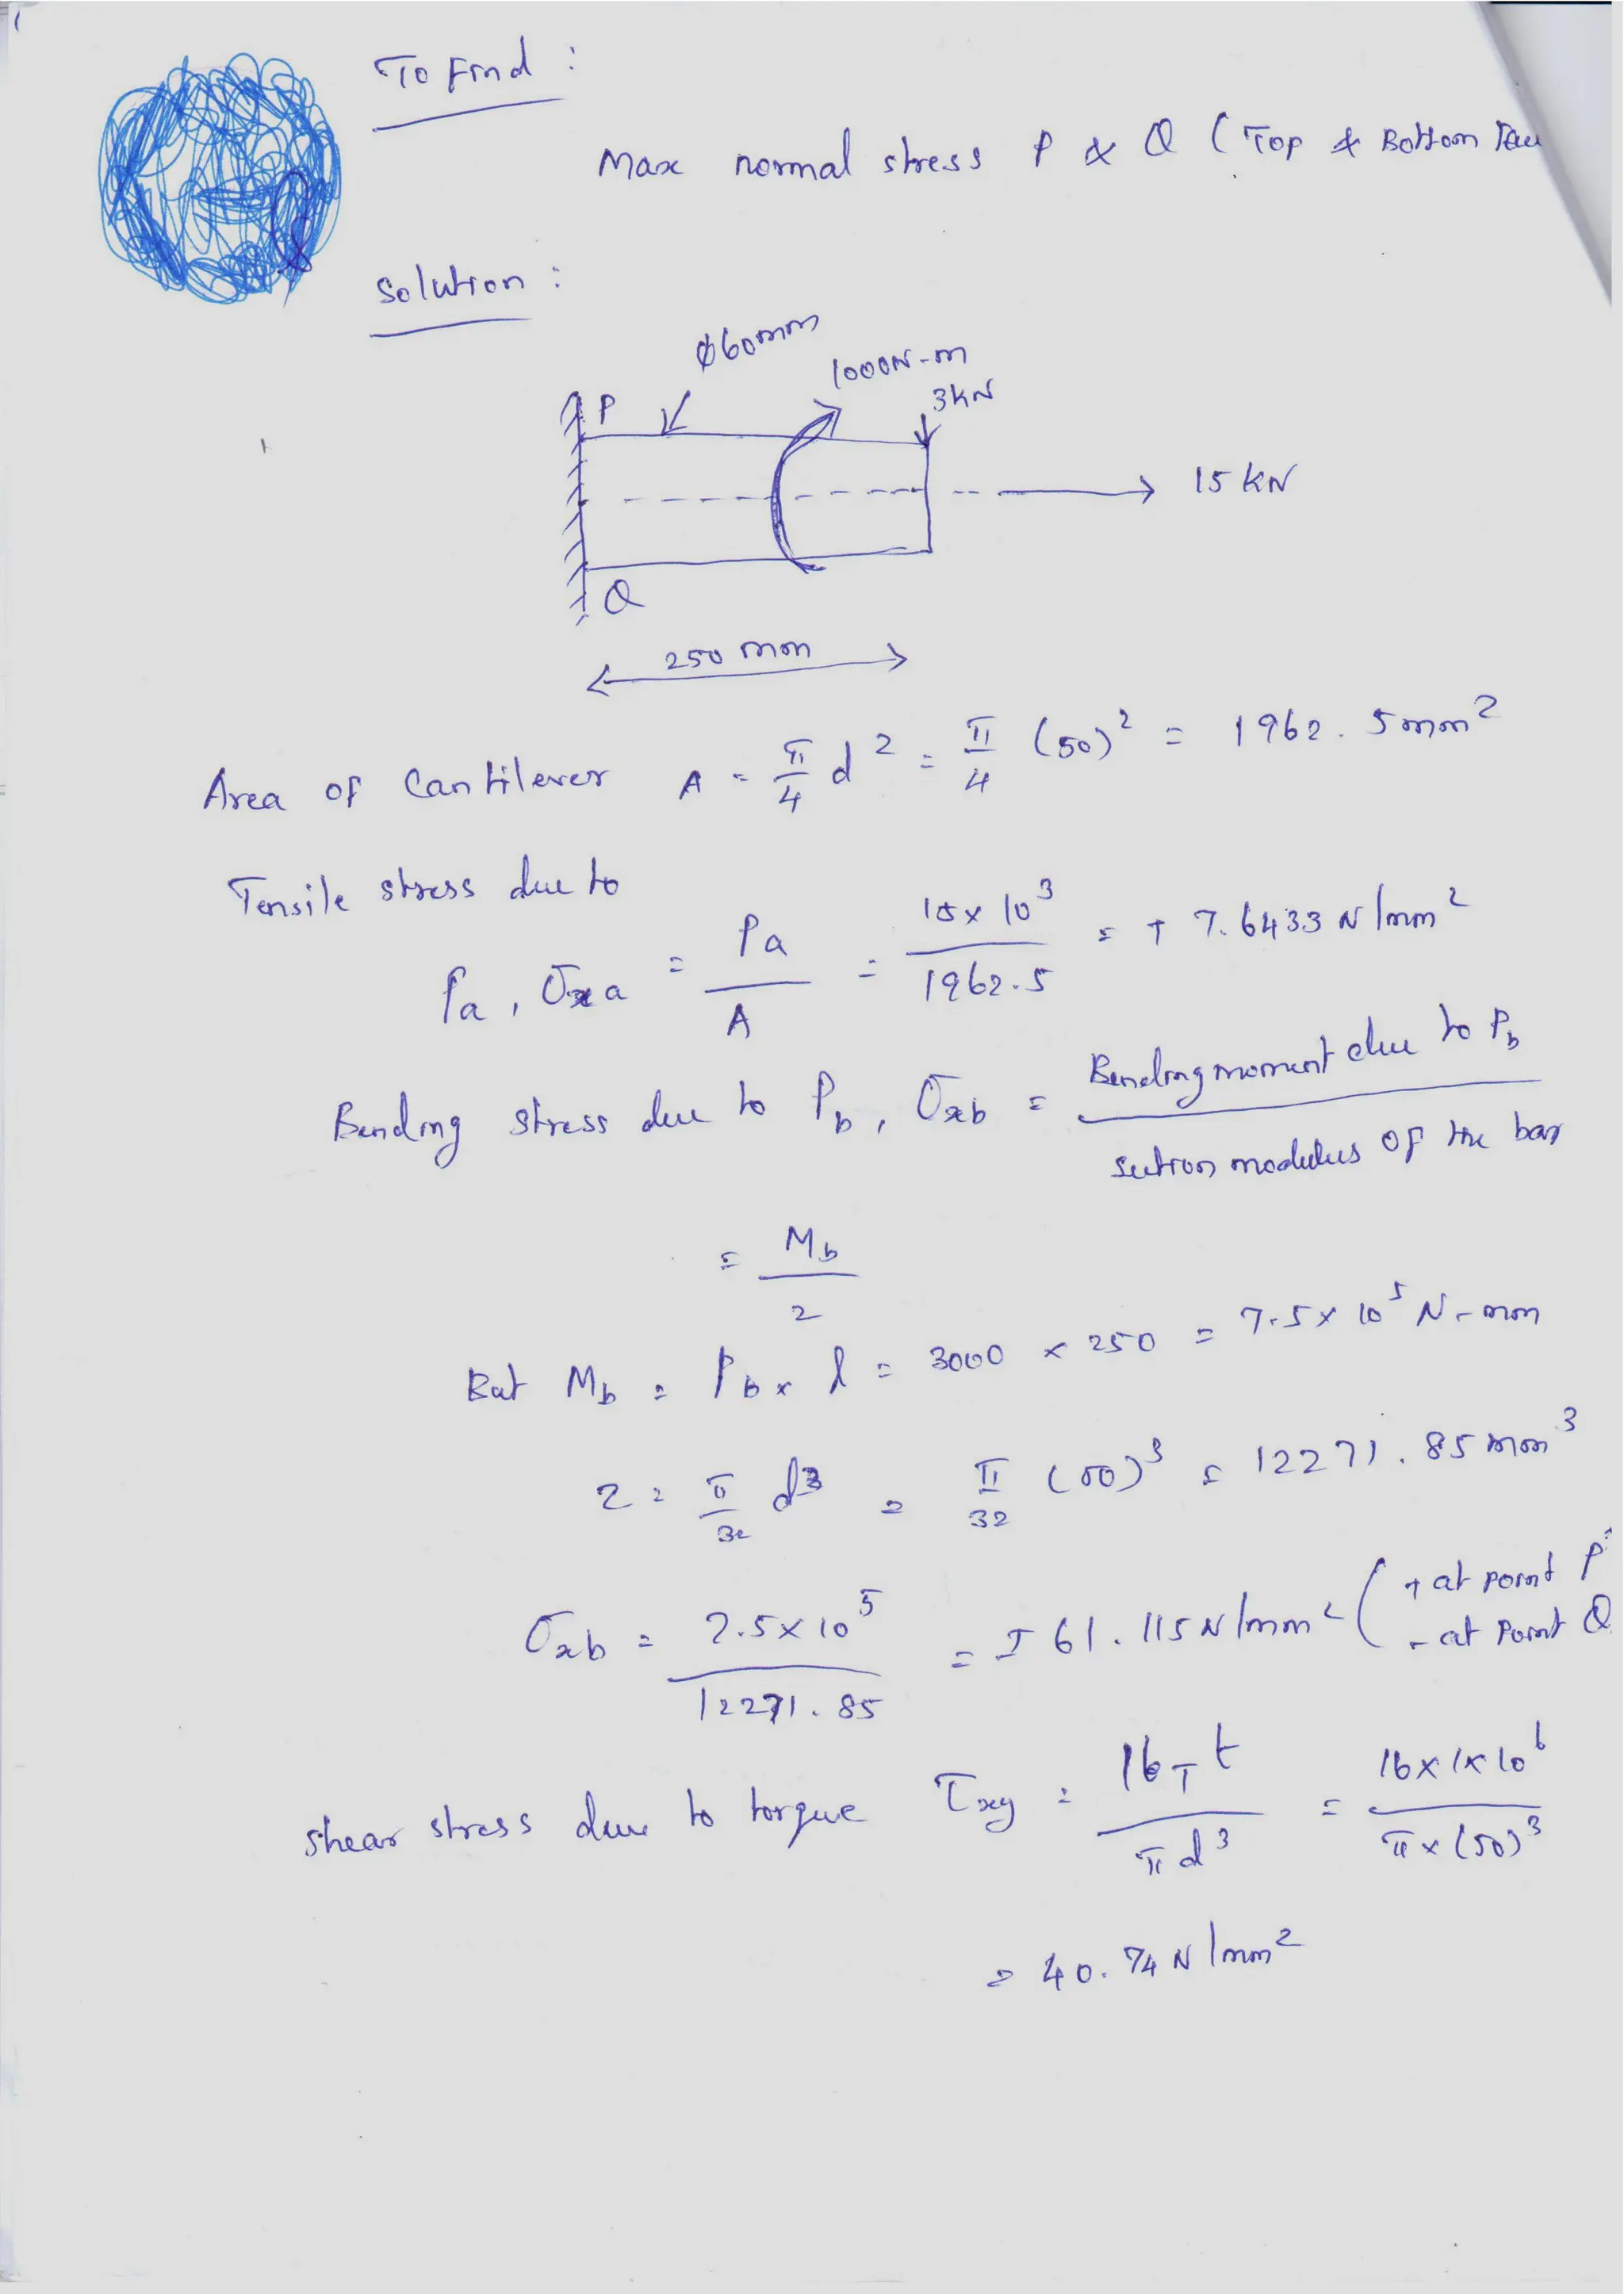 To Find :
Max normal stress P & Q ( Top & Bottom
Solution :
ϕ60mm
1000N-m
3kN
P
15 KN
Q
250 mm
Area of Cantilever A = π/4 d² = π/4 (50)² = 1962.5mm²
Tensile stress due to
Pa, σxa = Pa/A = 15x10³/1962.5 = + 7.6433 N/mm²
Bending stress due to Pb, σxb = Bending moment due to Pb / Section modulus of the bar
= Mb/Z
But Mb = Pb x l = 3000 x 250 = 7.5x10⁵ N-mm
Z = π/32 d³ = π/32 (50)³ = 12271.85mm³
σxb = 7.5x10⁵/12271.85 = ± 61.115N/mm² ( + at point P
- at point Q
Shear stress due to torque τxy = 16Tt/πd³ = 16x1x10⁶/πx(50)³
= 40.74 N/mm²